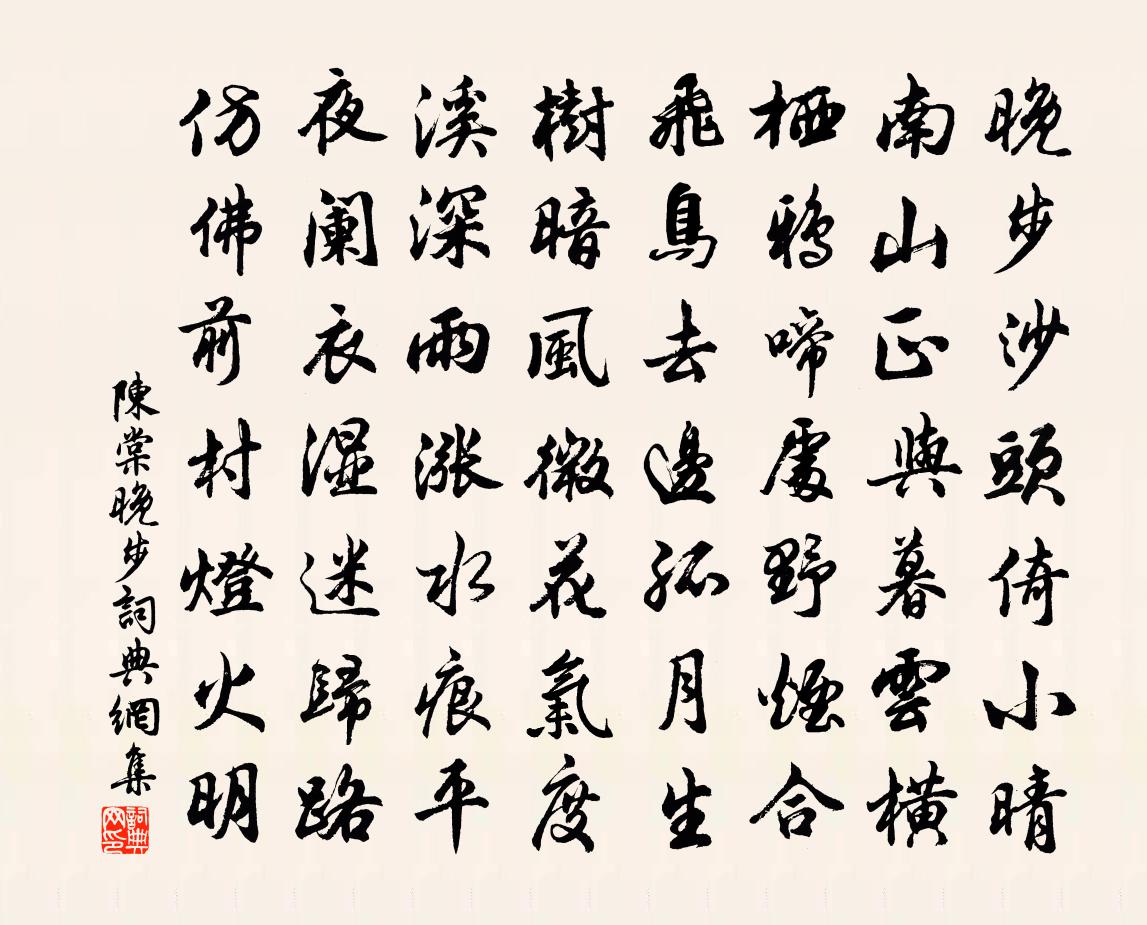 晚步沙頭倚小晴
南山正與暮雲橫
栖鴉啼處野煙合
飛鳥去邊孤月生
樹暗風微花氣度
溪深雨漲水痕平
夜闌衣濕迷歸路
仿佛前村燈火明
陳棠晚步詞典網集
詞典網印